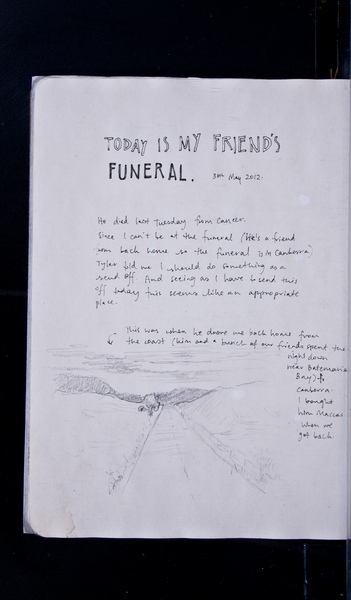 TODAY IS MY FRIEND'S
FUNERAL. 30th May 2012.
He died last Tuesday from Cancer.
Since I can't be at the funeral (He's a friend
from back home so the funeral is in Canberra)
Tyler told me I should do something as a
send off. And seeing as I have to send this
off today this seems like an appropriate
place.
This was when he drove me back home from
the coast (him and a bunch of our friends spent the
night down
near Batemans
Bay) to
Canberra.
I bought
him Maccas
when we
got back